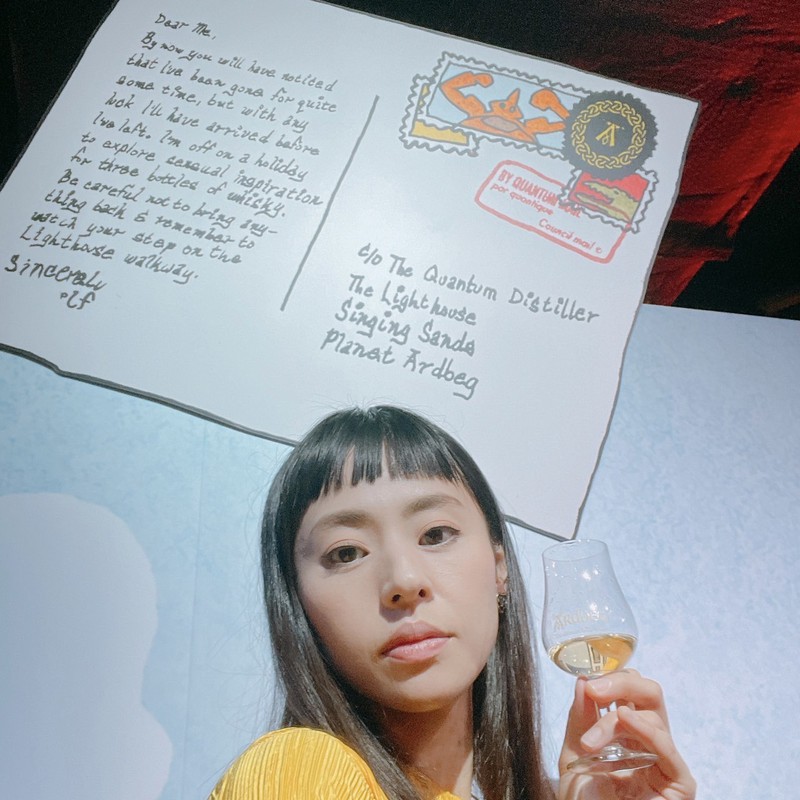 Dear Me,
By now you will have noticed
that I've been gone for quite
some time, but with any
luck I'll have arrived before
I've left. I'm off on a holiday
to explore sensual inspiration
for three bottles of whisky.
Be careful not to bring any-
thing back & remember to
watch your step on the
Lighthouse walkway.
Sincerely
BY QUANTUM
par quantique
Council mail
c/o The Quantum Distiller
The Lighthouse
Singing Sands
Planet Ardbeg